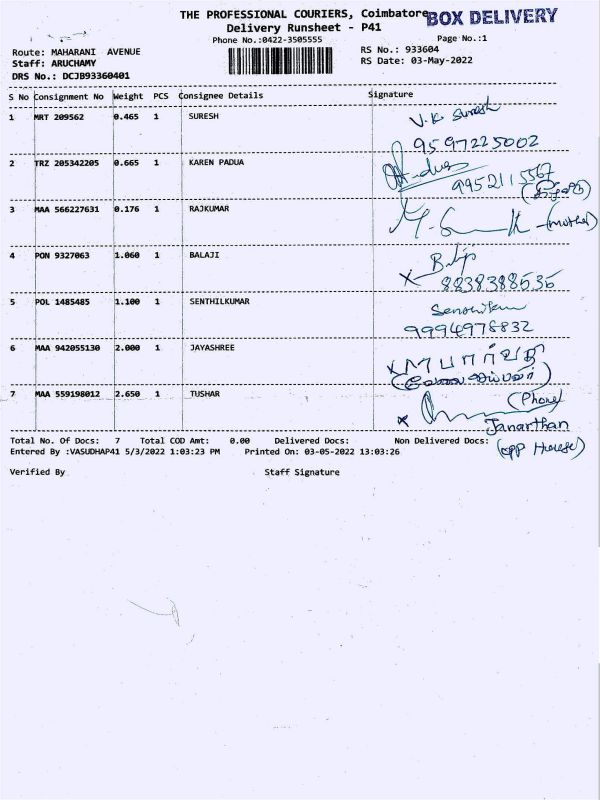 THE PROFESSIONAL COURIERS, Coimbatore
BOX DELIVERY
Delivery Runsheet - P41
Phone No.:0422-3505555
Page No.:1
Route: MAHARANI AVENUE
RS No.: 933604
Staff: ARUCHAMY
RS Date: 03-May-2022
DRS No.: DCJB93360401
S No Consignment No Weight PCS Consignee Details Signature
1 MRT 209562 0.465 1 SURESH V.K Suresh
9597225002
2 TRZ 205342205 0.665 1 KAREN PADUA
9952115567
3 MAA 566227631 0.176 1 RAJKUMAR (mother)
4 PON 9327063 1.060 1 BALAJI
8838388535
5 POL 1485485 1.100 1 SENTHILKUMAR
9994978832
6 MAA 942055130 2.000 1 JAYASHREE பார்வதி
7 MAA 559198012 2.650 1 TUSHAR (Phone)
Janarthan
Total No. Of Docs: 7 Total COD Amt: 0.00 Delivered Docs: Non Delivered Docs:
(opp House)
Entered By :VASUDHAP41 5/3/2022 1:03:23 PM Printed On: 03-05-2022 13:03:26
Verified By Staff Signature